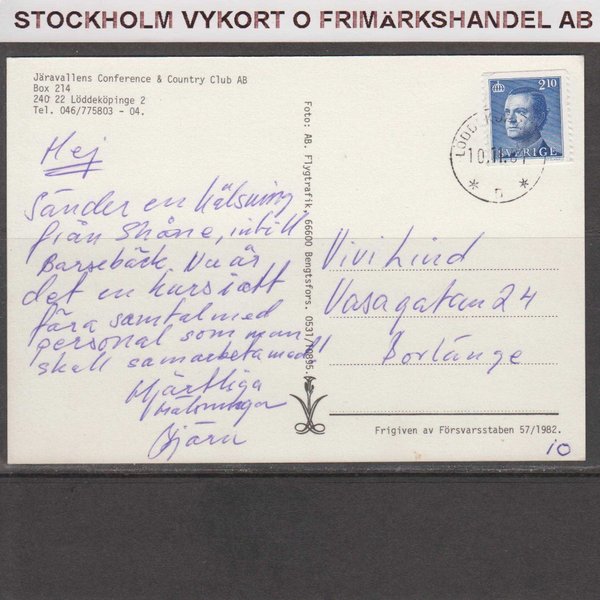 STOCKHOLM VYKORT O FRIMÄRKSHANDEL AB
Järavallens Conference & Country Club AB
Box 214
240 22 Löddeköpinge 2
Tel. 046/775803 - 04.
Hej
Sänder en hälsning
från Skåne, intill
Barsebäck. Nu är
det en kurs i att
föra samtal med
personal som man
skall samarbeta med!!
Hjärtliga
Hälsningar
Björn
Foto: AB. Flygtrafik, 66600 Bengtsfors. 0531/10895.
2 10
SVERIGE
Vivi Lind
Vasagatan 24
Borlänge
Frigiven av Försvarsstaben 57/1982.
10